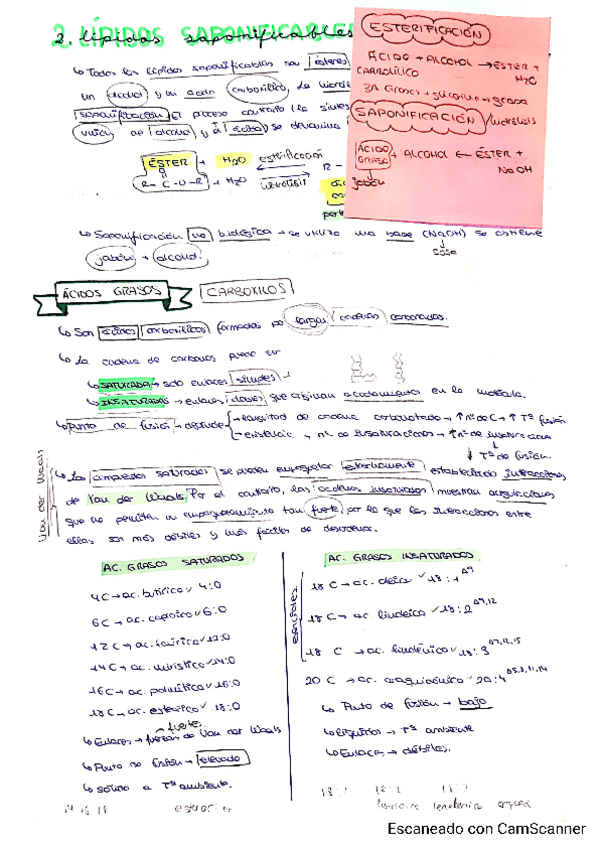 2. LÍPIDOS SAPONIFICABLES
↳ Todos los lípidos saponificables son ésteres
un alcohol y un ácido carboxílico, la
saponificación. El proceso contrario (la
unión de alcohol y ácido) se denomina
ÉSTER + H2O esterificación
R - C - O - R' + H2O hidrólisis R -
ESTERIFICACIÓN
ÁCIDO + ALCOHOL → ÉSTER +
CARBOXÍLICO H2O
3A Grasos + glicerina → grasa
SAPONIFICACIÓN / hidrólisis
ÁCIDO GRASO + ALCOHOL ← ÉSTER +
NaOH
jabón
↳ Saponificación no biológica → se utiliza una base (NaOH) se obtiene
jabón + alcohol. sosa
ÁCIDOS GRASOS CARBOXILOS
↳ Son ácidos carboxílicos formados por largas cadenas carbonadas.
↳ La cadena de carbonos puede ser
↳ SATURADA → solo enlaces simples
↳ INSATURADAS → enlaces dobles que originan acodamientos en la molécula.
↳ Punto de fusión → depende → longitud de cadena → ↑ nº de C → ↑ Tª fusión
→ existencia y nº de insaturaciones → ↑ nº de
↓ Tª de fusión.
Van der Waals
↳ Las saturadas se pueden empaquetar estrechamente estableciendo interacciones
de Van der Waals. Por el contrario, las cadenas insaturadas muestran angulaciones
que no permiten un empaquetamiento tan fuerte, por lo que las interacciones entre
ellas son más débiles y más fáciles de
AC. GRASOS SATURADOS
4C → ac. butírico ✓ 4:0
6C → ac. caproico ✓ 6:0
12C → ac. laúrico ✓ 12:0
14C → ac. mirístico ✓ 14:0
16C → ac. palmítico ✓ 16:0
18C → ac. esteárico ✓ 18:0
↳ Enlaces → fuerzas de Van der Waals
fuertes
↳ Punto de fusión → elevado
↳ sólido a Tª ambiente.
14 16 18
AC. GRASOS INSATURADOS
esenciales
18 C → ac. oleico ✓ 18:1 Δ9
18 C → ac. linoleico ✓ 18:2 Δ9,12
18 C → ac. linolénico ✓ 18:3 Δ9,12,15
20 C → ac. araquidónico ✓ 20:4 Δ5,8,11,14
↳ Punto de fusión → bajo
↳ líquidos → Tª ambiente
↳ Enlaces → débiles.
Escaneado con CamScanner